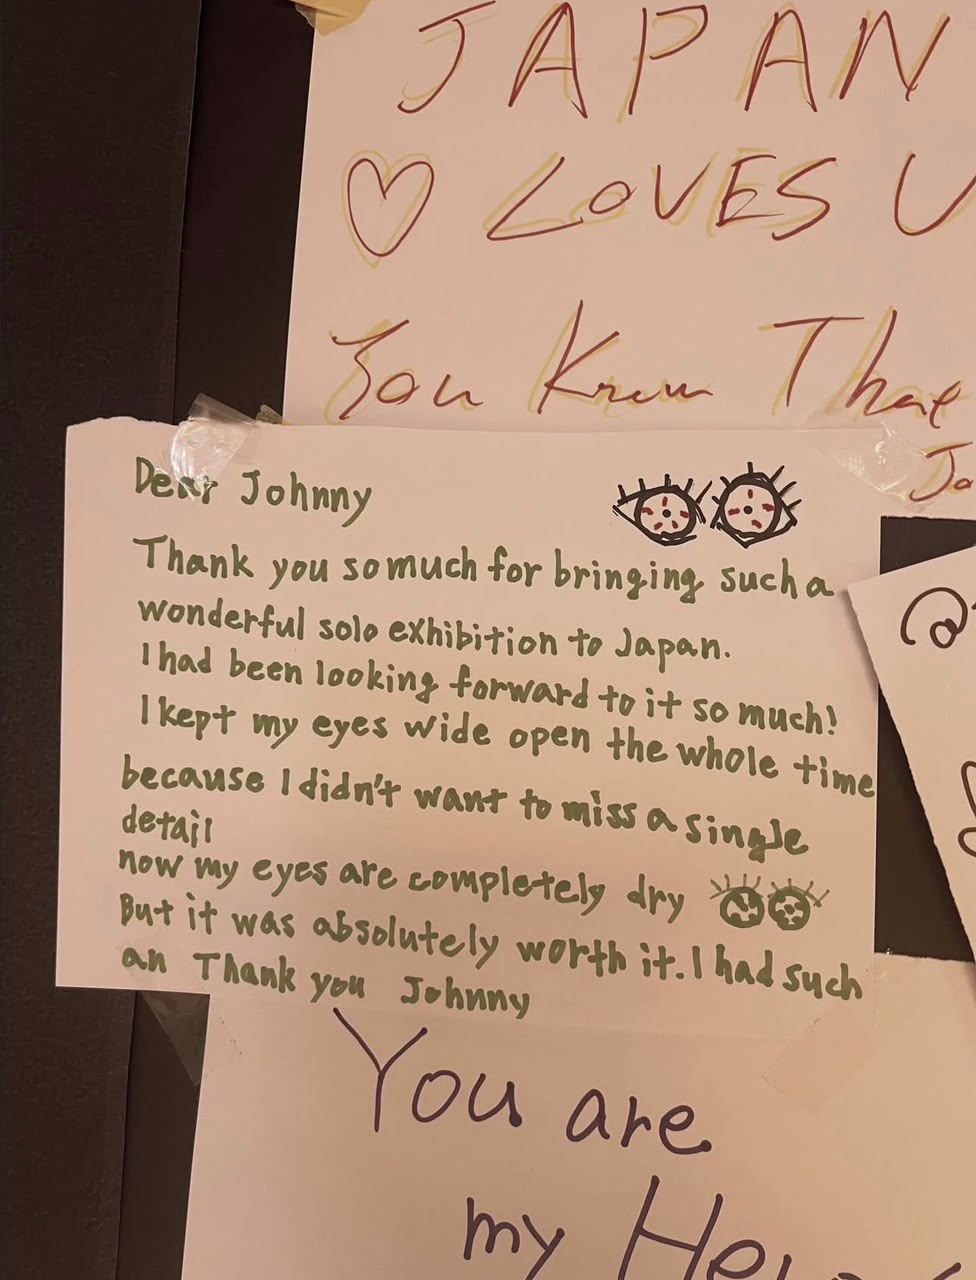 JAPAN
♡ LOVES U
You Know That
Ja
Dear Johnny
Thank you so much for bringing such a
wonderful solo exhibition to Japan.
I had been looking forward to it so much!
I kept my eyes wide open the whole time
because I didn't want to miss a single
detail
now my eyes are completely dry
But it was absolutely worth it. I had such
an Thank you Johnny
You are
my